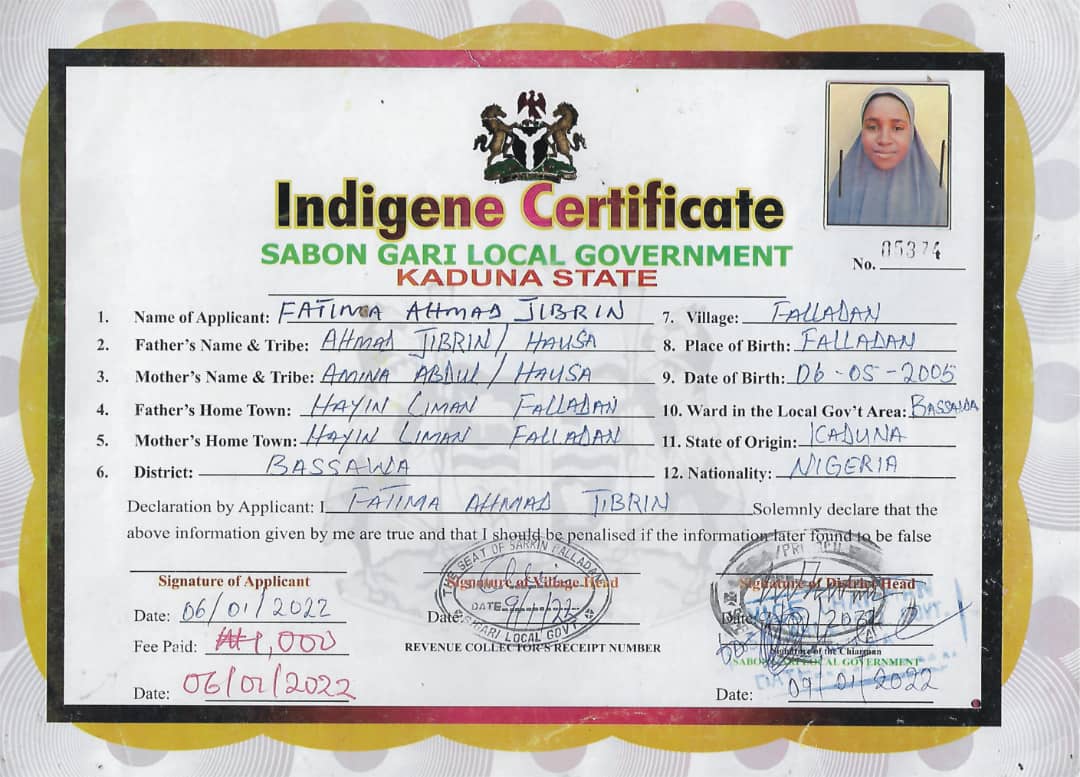 Indigene Certificate
SABON GARI LOCAL GOVERNMENT
KADUNA STATE
No. 05374
1. Name of Applicant: FATIMA AHMAD JIBRIN
2. Father's Name & Tribe: AHMAD JIBRIN / HAUSA
3. Mother's Name & Tribe: AMINA ABDUL / HAUSA
4. Father's Home Town: HAYIN LIMAN FALLADAN
5. Mother's Home Town: HAYIN LIMAN FALLADAN
6. District: BASSAWA
7. Village: FALLADAN
8. Place of Birth: FALLADAN
9. Date of Birth: 06-05-2005
10. Ward in the Local Gov't Area: BASSAWA
11. State of Origin: KADUNA
12. Nationality: NIGERIA
Declaration by Applicant: I FATIMA AHMAD JIBRIN Solemnly declare that the
above information given by me are true and that I should be penalised if the information later found to be false
Signature of Applicant
Date: 06/01/2022
Fee Paid: ₦1,000
Date: 06/01/2022
Signature of Village Head
THE SEAT OF SARKIN FALLADAN
DATE 9/1/22
GARI LOCAL GOVT
Date:
REVENUE COLLECTOR'S RECEIPT NUMBER
Signature of District Head
Date:
Signature of the Chiarman
SABON GARI LOCAL GOVERNMENT
Date: 09/01/2022